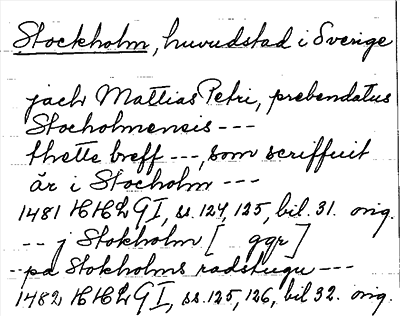 Stockholm, huvudstad i Sverige
jach Mattias Petri, prebendatus
Stocholmensis ---
thette breff ---, som scriffuit
är i Stocholm ---
1481 HHLGI, ss. 124, 125, bil. 31. orig.
-- j Stokholm [ ggr]
-- pa Stokholms radstugu ---
1482 HHLGI, ss. 125, 126, bil 32. orig.